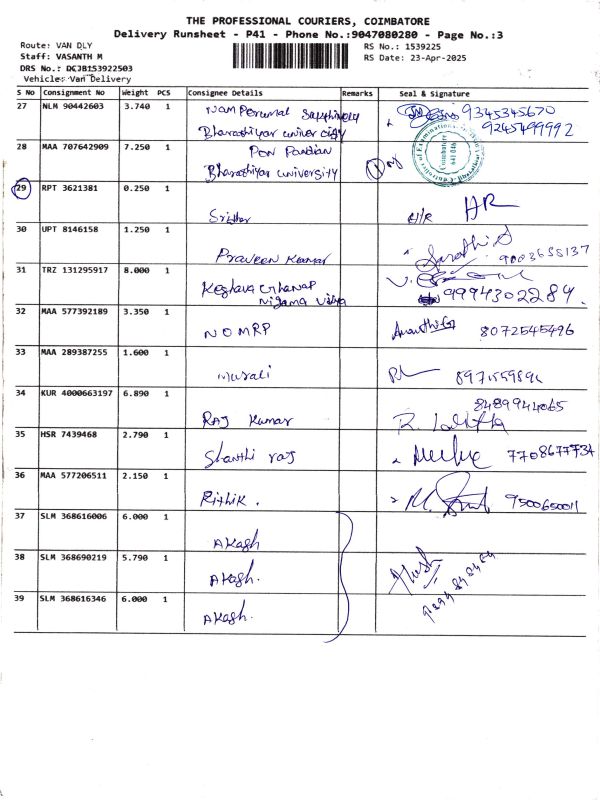 THE PROFESSIONAL COURIERS, COIMBATORE
Delivery Runsheet - P41 - Phone No.:9047080280 - Page No.:3
Route: VAN DLY
RS No.: 1539225
Staff: VASANTH M
RS Date: 23-Apr-2025
DRS No.: DCJB153922503
Vehicles: Van Delivery
S No Consignment No Weight PCS Consignee Details Remarks Seal & Signature
27 NLM 90442603 3.740 1
9345345670
Bharathiyar univercity 9245499992
28 MAA 707642909 7.250 1 Pon Pandian
Bharathiyar university
29 RPT 3621381 0.250 1
Sridhar H/R HR
30 UPT 8146158 1.250 1
Praveen Kumar Sarathi S
31 TRZ 131295917 8.000 1
Keshava
Nigama Vidya 9994302284
32 MAA 577392189 3.350 1
NOMRP Ananthi 8072545496
33 MAA 289387255 1.600 1
Murali
34 KUR 4000663197 6.890 1
8489944065
Raj Kumar R. Lalitha
35 HSR 7439468 2.790 1
Shanthi raj 7708677734
36 MAA 577206511 2.150 1
Rithik. 9500650011
37 SLM 368616006 6.000 1
Akash
38 SLM 368690219 5.790 1
Akash. Akash
39 SLM 368616346 6.000 1
Akash.